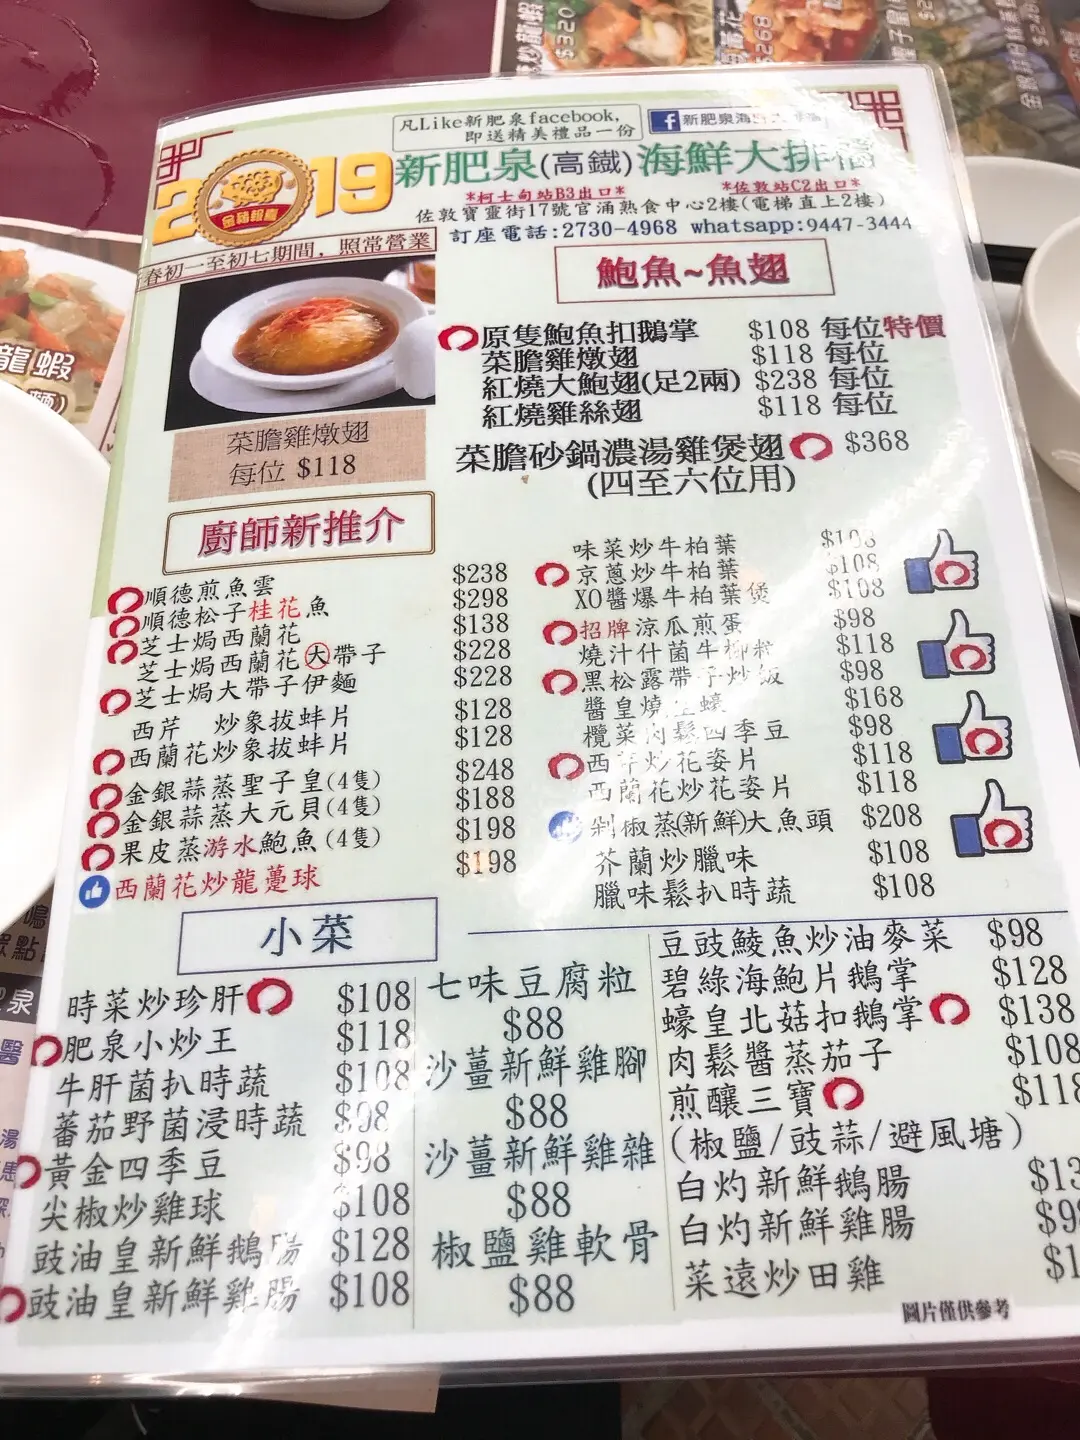 凡Like新肥泉facebook,
即送精美禮品一份
新肥泉海
2019
金豬報喜
新肥泉(高鐵)海鮮大排檔
*柯士甸站B3出口* *佐敦站C2出口*
佐敦寶靈街17號官涌熟食中心2樓(電梯直上2樓)
訂座電話:2730-4968 whatsapp:9447-3444
春初一至初七期間，照常營業
菜膽雞燉翅
每位 $118
鮑魚~魚翅
原隻鮑魚扣鵝掌 $108 每位特價
菜膽雞燉翅 $118 每位
紅燒大鮑翅(足2兩) $238 每位
紅燒雞絲翅 $118 每位
菜膽砂鍋濃湯雞煲翅 $368
(四至六位用)
廚師新推介
順德煎魚雲 $238
順德松子桂花魚 $298
芝士焗西蘭花 $138
芝士焗西蘭花大帶子 $228
芝士焗大帶子伊麵 $228
西芹 炒象拔蚌片 $128
西蘭花炒象拔蚌片 $128
金銀蒜蒸聖子皇(4隻) $248
金銀蒜蒸大元貝(4隻) $188
果皮蒸游水鮑魚(4隻) $198
西蘭花炒龍躉球 $198
味菜炒牛柏葉 $108
京蔥炒牛柏葉 $108
XO醬爆牛柏葉煲 $108
招牌涼瓜煎蛋 $98
燒汁什菌牛柳粒 $118
黑松露帶子炒飯 $98
醬皇燒生蠔 $168
欖菜肉鬆四季豆 $98
西芹炒花姿片 $118
西蘭花炒花姿片 $118
剁椒蒸(新鮮)大魚頭 $208
芥蘭炒臘味 $108
臘味鬆扒時蔬 $108
小菜
時菜炒珍肝 $108
肥泉小炒王 $118
牛肝菌扒時蔬 $108
蕃茄野菌浸時蔬 $98
黃金四季豆 $98
尖椒炒雞球 $108
豉油皇新鮮鵝腸 $128
豉油皇新鮮雞腸 $108
七味豆腐粒
$88
沙薑新鮮雞腳
$88
沙薑新鮮雞雜
$88
椒鹽雞軟骨
$88
豆豉鯪魚炒油麥菜 $98
碧綠海鮑片鵝掌 $128
蠔皇北菇扣鵝掌 $138
肉鬆醬蒸茄子 $108
煎釀三寶 $118
(椒鹽/豉蒜/避風塘)
白灼新鮮鵝腸 $13
白灼新鮮雞腸 $9
菜遠炒田雞 $1
圖片僅供參考
$320
$268
龍蝦